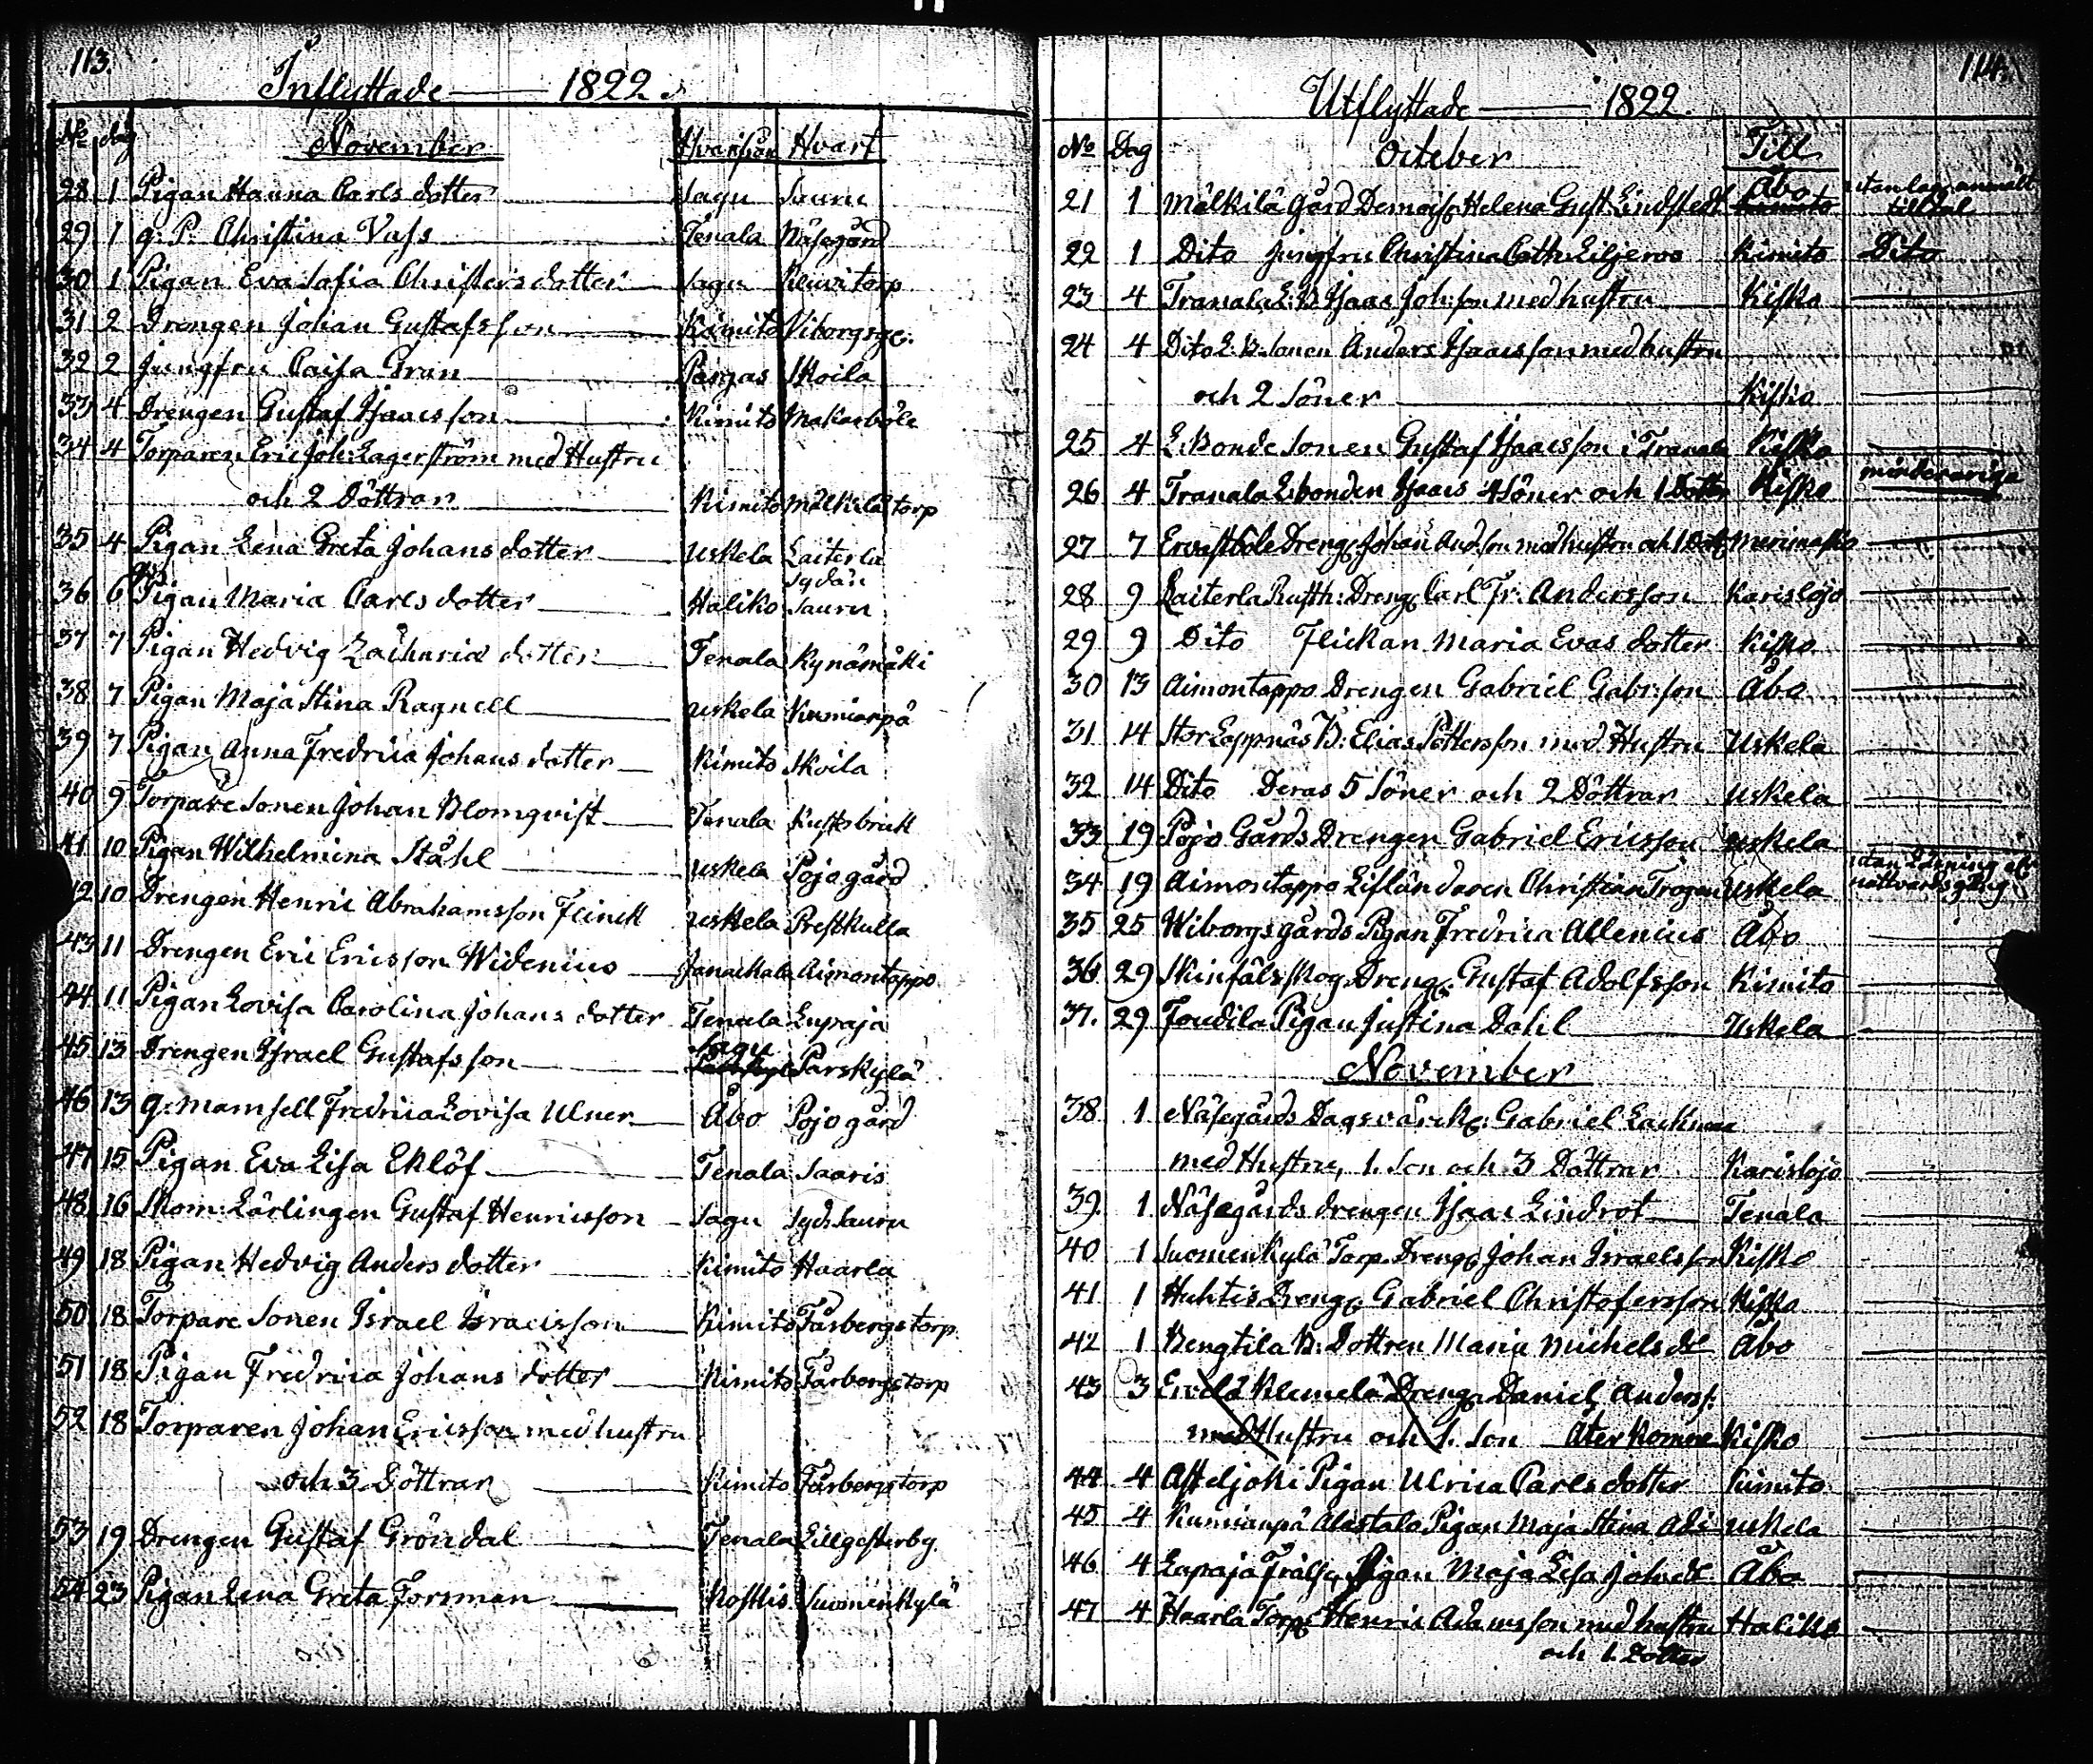 113.
Inflyttade 1822.
No dag November Hvarifrån Hvart
28 1 Pigan Hanna Carls dotter Sagu Sauru
29 1 g: P: Christina Vass Tenala Näsegård
30 1 Pigan Eva Sofia Christers dotter Sagu torp
31 2 Drengen Johan Gustafsson Kimito Viborgsg:
32 2 Jungfru Caisa Gran Pargas Skoila
33 4 Drengen Gustaf Isaacsson Kimito Makarböle
34 4 Torparen Eric Joh: Lagerström med Hustru
och 2 Döttrar Kimito Mälkilä torp
35 4 Pigan Lena Greta Johans dotter Uskela Laiterla
36 6 Pigan Maria Carls dotter Haliko Sydän Sauru
37 7 Pigan Hedvig Zacharia dotter Tenala Kynämäki
38 7 Pigan Maja Stina Ragnell Uskela Kumianpä
39 7 Pigan Anna Fredrica Johans dotter Kimito Skoila
40 9 Torpare Sonen Johan Blomqvist Tenala
41 10 Pigan Wilhelmina Ståhl Uskela Pojo gård
42 10 Drengen Henric Abrahamsson Flinck Uskela Prestkulla
43 11 Drengen Eric Ericsson Widenius Janackala Aimontappo
44 11 Pigan Lovisa Carolina Johans dotter Tenala Lupaja
45 13 Drengen Israel Gustafsson Sagu Parskylä
46 13 g: Mamsell Fredrica Lovisa Ulner Åbo Pojo gård
47 15 Pigan Eva Lisa Eklöf Tenala Saaris
48 16 Skom: Lärlingen Gustaf Henricsson Sagu Syd: Sauru
49 18 Pigan Hedvig Anders dotter Kimito Haarla
50 18 Torpare Sonen Israel Israelsson Kimito Fårbergs torp
51 18 Pigan Fredrica Johans dotter Kimito Fårbergs torp
52 18 Torparen Johan Ericsson med hustru
och 3 Döttrar Kimito Fårbergs torp
53 19 Drengen Gustaf Gröndal Tenala Lillgesterby
54 23 Pigan Lena Greta Forsman Koskis Suomenkylä
114.
Utflyttade 1822.
No Dag October Till
21 1 Mälkilä gård Demois: Helena Gust: Lindstedt Åbo
22 1 Dito Jungfru Christina Cath: Liljeroos Kimito Dito
23 4 Tranala L: B: Isaac Joh:son med hustru Kisko
24 4 Dito L: B: Sonen Anders Isaacsson med hustru
och 2 Söner Kisko
25 4 L: Bonde Sonen Gustaf Isaacsson i Tranala Kisko
26 4 Tranala L: bonden Isaacs 4 Söner och 1 Dotter Kisko minderariga
27 7 Ervastböle Dreng: Johan And:son med hustru och 1 Dott: Merimasko
28 9 Laiterla Rusth: Dreng: Carl Fr: Andersson Karislojo
29 9 Dito Flickan Maria Evas dotter Kisko
30 13 Aimontappo Drengen Gabriel Gabr:son Åbo
31 14 Stor Lappnäs B: Elias Pettersson med Hustru Uskela
32 14 Dito Deras 5 Söner och 2 Döttrar Uskela
33 19 Pojo Gårds Drengen Gabriel Ericsson Uskela
34 19 Aimontappo Lifländaren Christian Trogen Uskela utan Läsning och nattvards gång
35 25 Wiborgs gårds Pigan Fredrica Allenius Åbo
36 29 Skinfäls Skog Dreng: Gustaf Adolfsson Kimito
37. 29 Toudila Pigan Justina Dahl Uskela
November
38 1 Näsegårds Dagsvärck: Gabriel Lackman
med Hustru, 1. Son och 3 Döttrar Karislojo
39. 1 Näsegårds drengen Isaac Lindrot Tenala
40 1 Suomenkylä Torp. Dreng: Johan Israelsson Kisko
41 1 Huhtis Dreng: Gabriel Christofersson Kisko
42 1 Bengtila B: Dottren Maria Michels dr Åbo
43 3 Ervelä Klemelä Dreng: Daniel Anders s:
med Hustru och 1. Son Åter komne Kisko
44 4 Asteljoki Pigan Ulrica Carls dotter Kimito
45 4 Kumianpä Alistalo Pigan Maja Stina Ads: Uskela
46 4 Lapaja Frälse Pigan Maja Lisa Johsdr Åbo
47 4 Haarla Torp: Henric Adamsson med hustru Haliko
och 1. Dotter